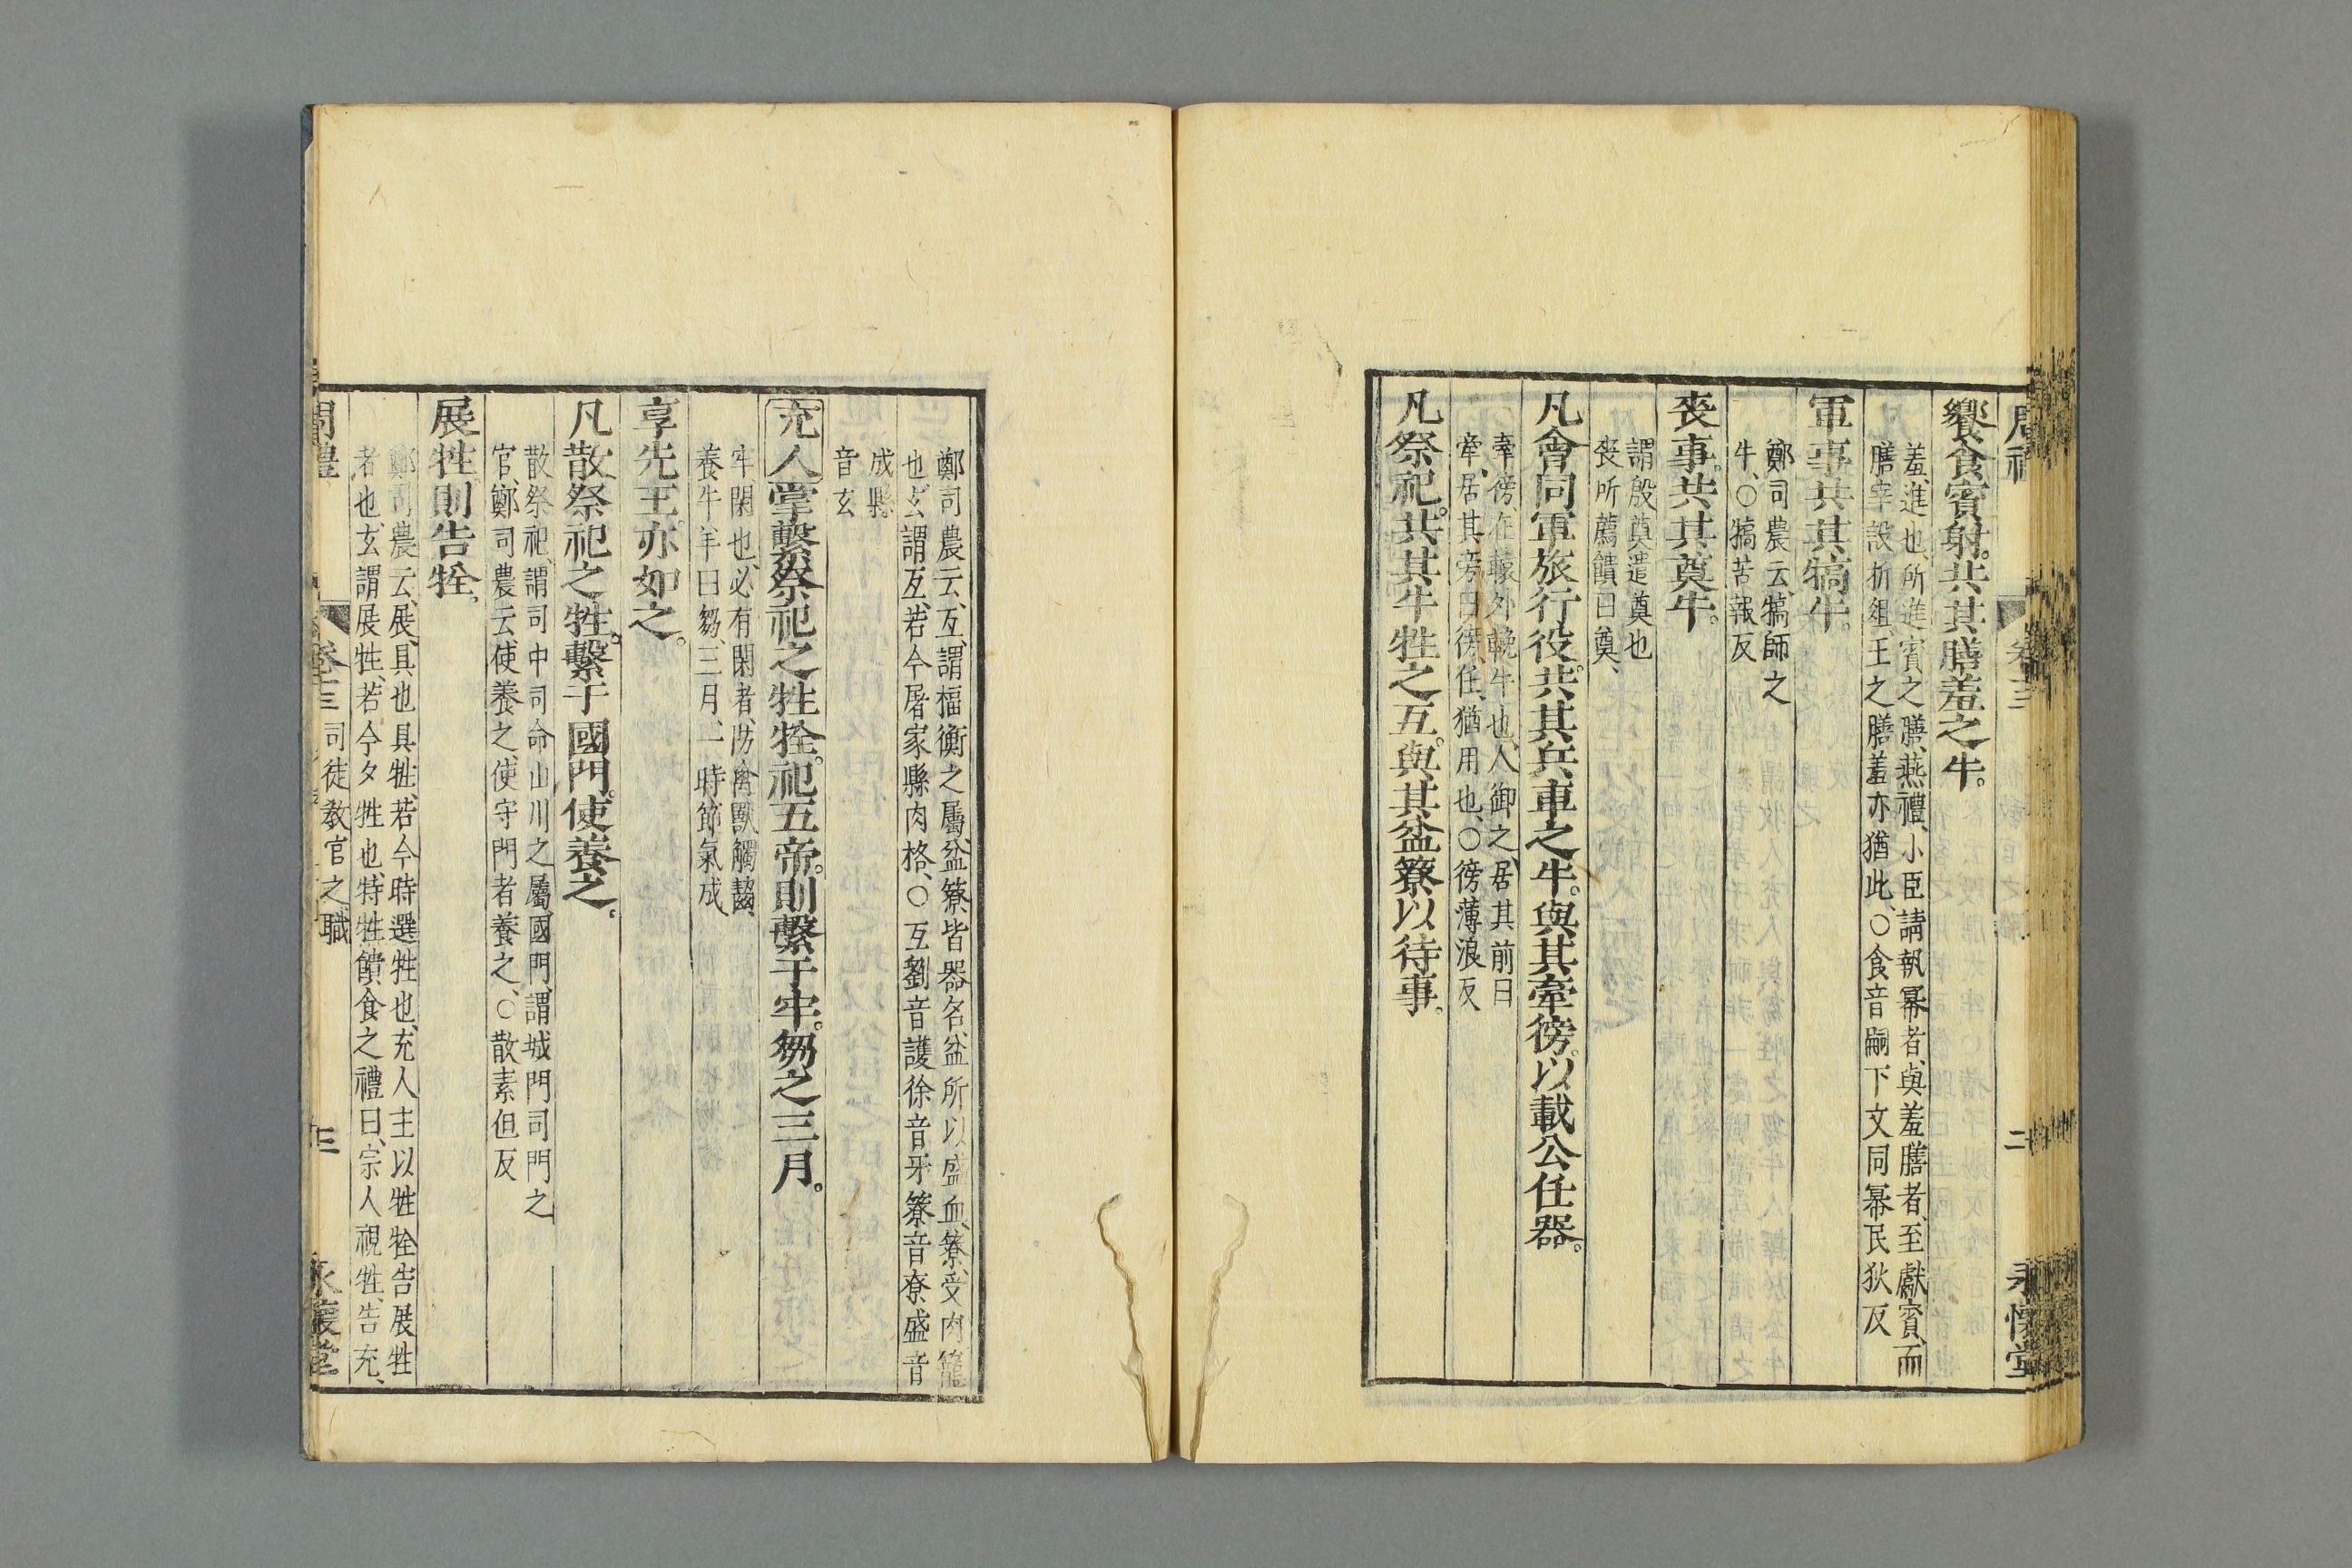 周禮
卷三
二
永懷堂
饗食賓射。共其膳羞之牛。
羞、進也、所進賓之膳、燕禮、小臣請執冪者、與羞膳者、至獻賓、而
膳宰設折俎、王之膳羞亦猶此、○食音嗣下文同冪民狄反
軍事共其犒牛。
鄭司農云、犒師之
牛、○犒苦報反
喪事。共其奠牛。
謂殷奠遣奠也
喪所薦饋曰奠、
凡會同軍旅行役。共其兵車之牛。與其牽徬。以載公任器。
牽徬、在轅外輓牛也、人御之、居其前曰
牽、居其旁曰徬、任、猶用也、○徬薄浪反
凡祭祀。共其牛牲之互。與其盆簝以待事。
鄭司農云、互、謂楅衡之屬、盆簝皆器名、盆所以盛血、簝、受肉籠
也、玄謂互、若今屠家縣肉格、○互劉音護徐音牙簝音寮盛音
成縣
音玄
充人掌繫祭祀之牲牷。祀五帝。則繫于牢。芻之三月。
牢、閑也、必有閑者、防禽獸觸齧、
養牛羊曰芻、三月、一時節氣成
享先王。亦如之。
凡散祭祀之牲。繫于國門。使養之。
散祭祀、謂司中司命山川之屬、國門、謂城門司門之
官、鄭司農云、使養之、使守門者養之、○散素但反
展牲、則告牷。
鄭司農云、展、具也、具牲、若今時選牲也、充人主以牲牷告展牲
者也、玄謂展牲、若今夕牲也、特牲饋食之禮曰、宗人視牲、告充、
周禮
卷三
司徒教官之職
三
永懷堂